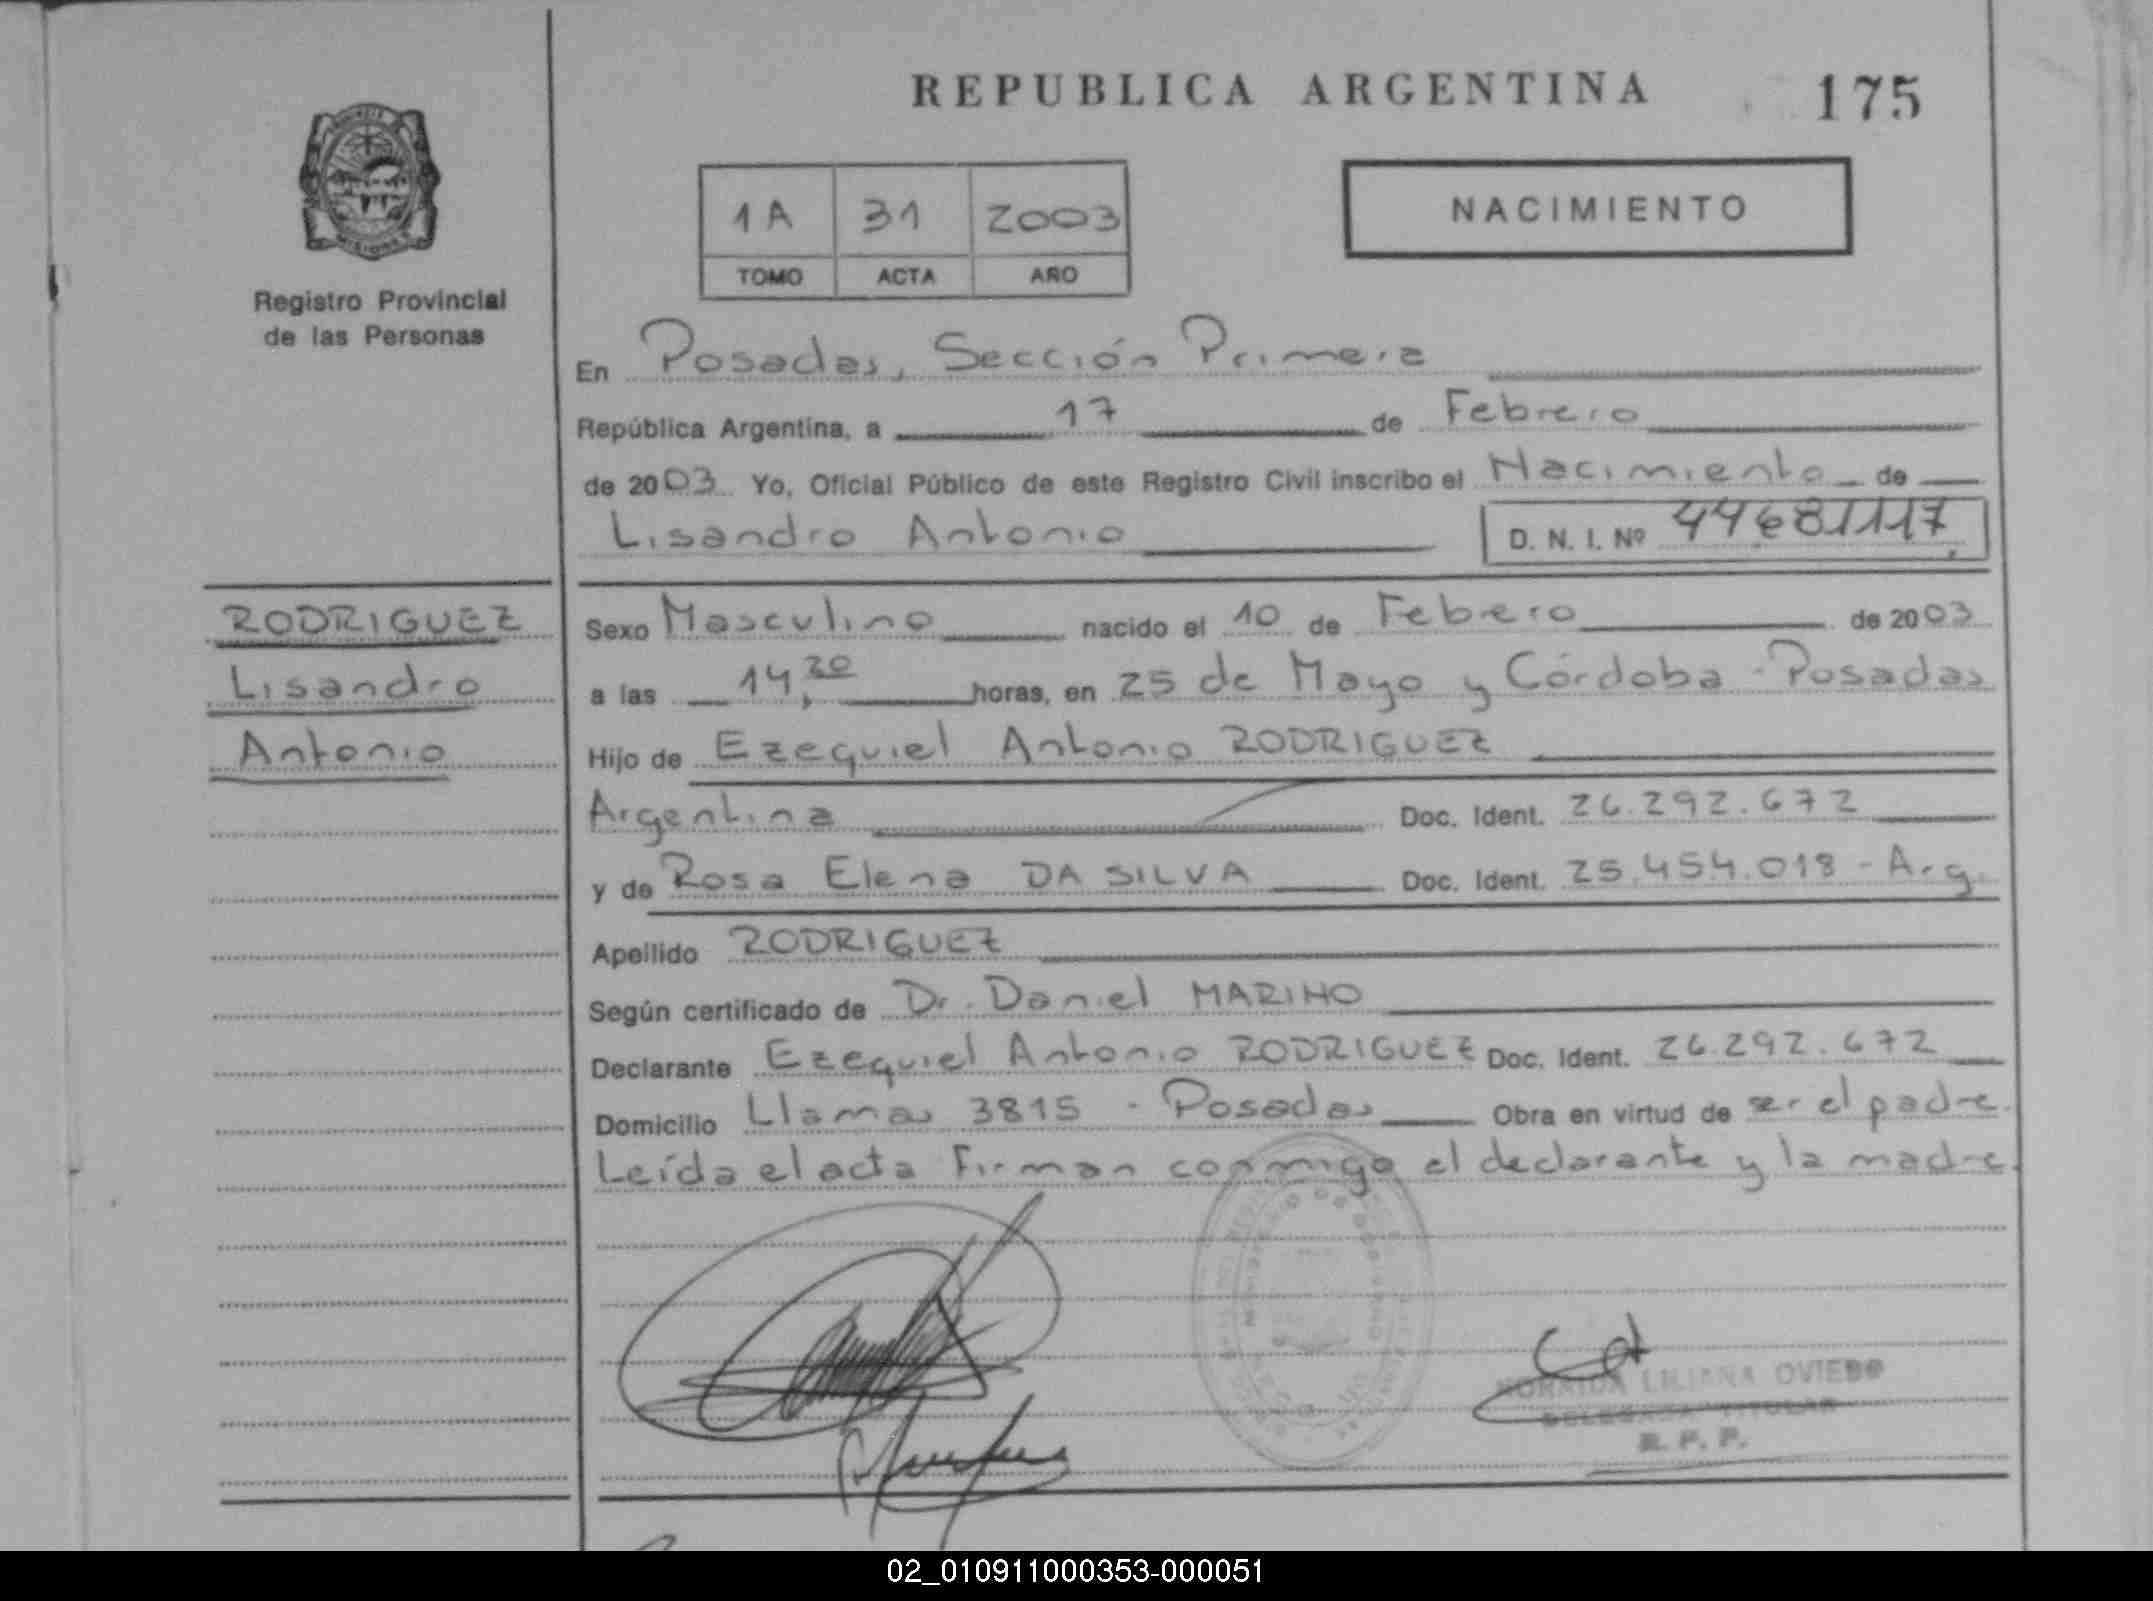 REPUBLICA ARGENTINA 175
1A 31 2003
TOMO ACTA AÑO
NACIMIENTO
MISIONES
Registro Provincial
de las Personas
En Posadas, Sección Primera
República Argentina, a 17 de Febrero
de 2003 Yo, Oficial Público de este Registro Civil inscribo el Nacimiento de
Lisandro Antonio D. N. I. Nº 44681117
RODRIGUEZ
Lisandro
Antonio
Sexo Masculino nacido el 10 de Febrero de 2003
a las 14,20 horas, en 25 de Mayo y Córdoba - Posadas
Hijo de Ezequiel Antonio RODRIGUEZ
Argentina Doc. Ident. 26.292.672
y de Rosa Elena DA SILVA Doc. Ident. 25.454.018 - Arg.
Apellido RODRIGUEZ
Según certificado de Dr. Daniel MARINO
Declarante Ezequiel Antonio RODRIGUEZ Doc. Ident. 26.292.672
Domicilio Llamas 3815 - Posadas Obra en virtud de ser el padre.
Leída el acta Firman conmigo el declarante y la madre.
LILIANA OVIEDO
DELEGADA TITULAR
R. P. P.
02_010911000353-000051